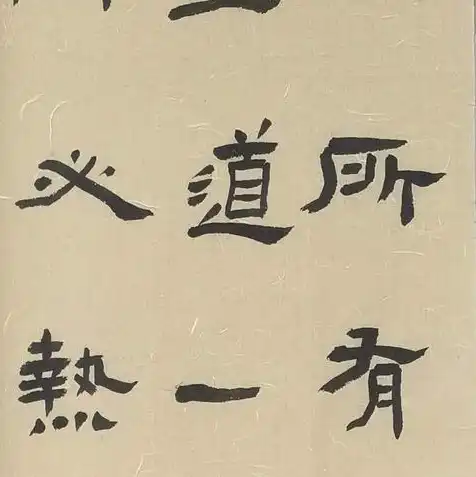 所有
道一
必熱